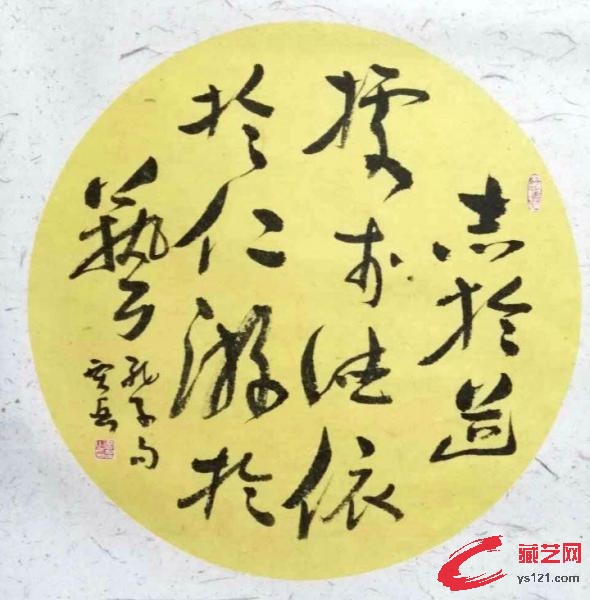 志於道
據於德依
於仁游於
藝
孔子句
藏艺网
ys121.com